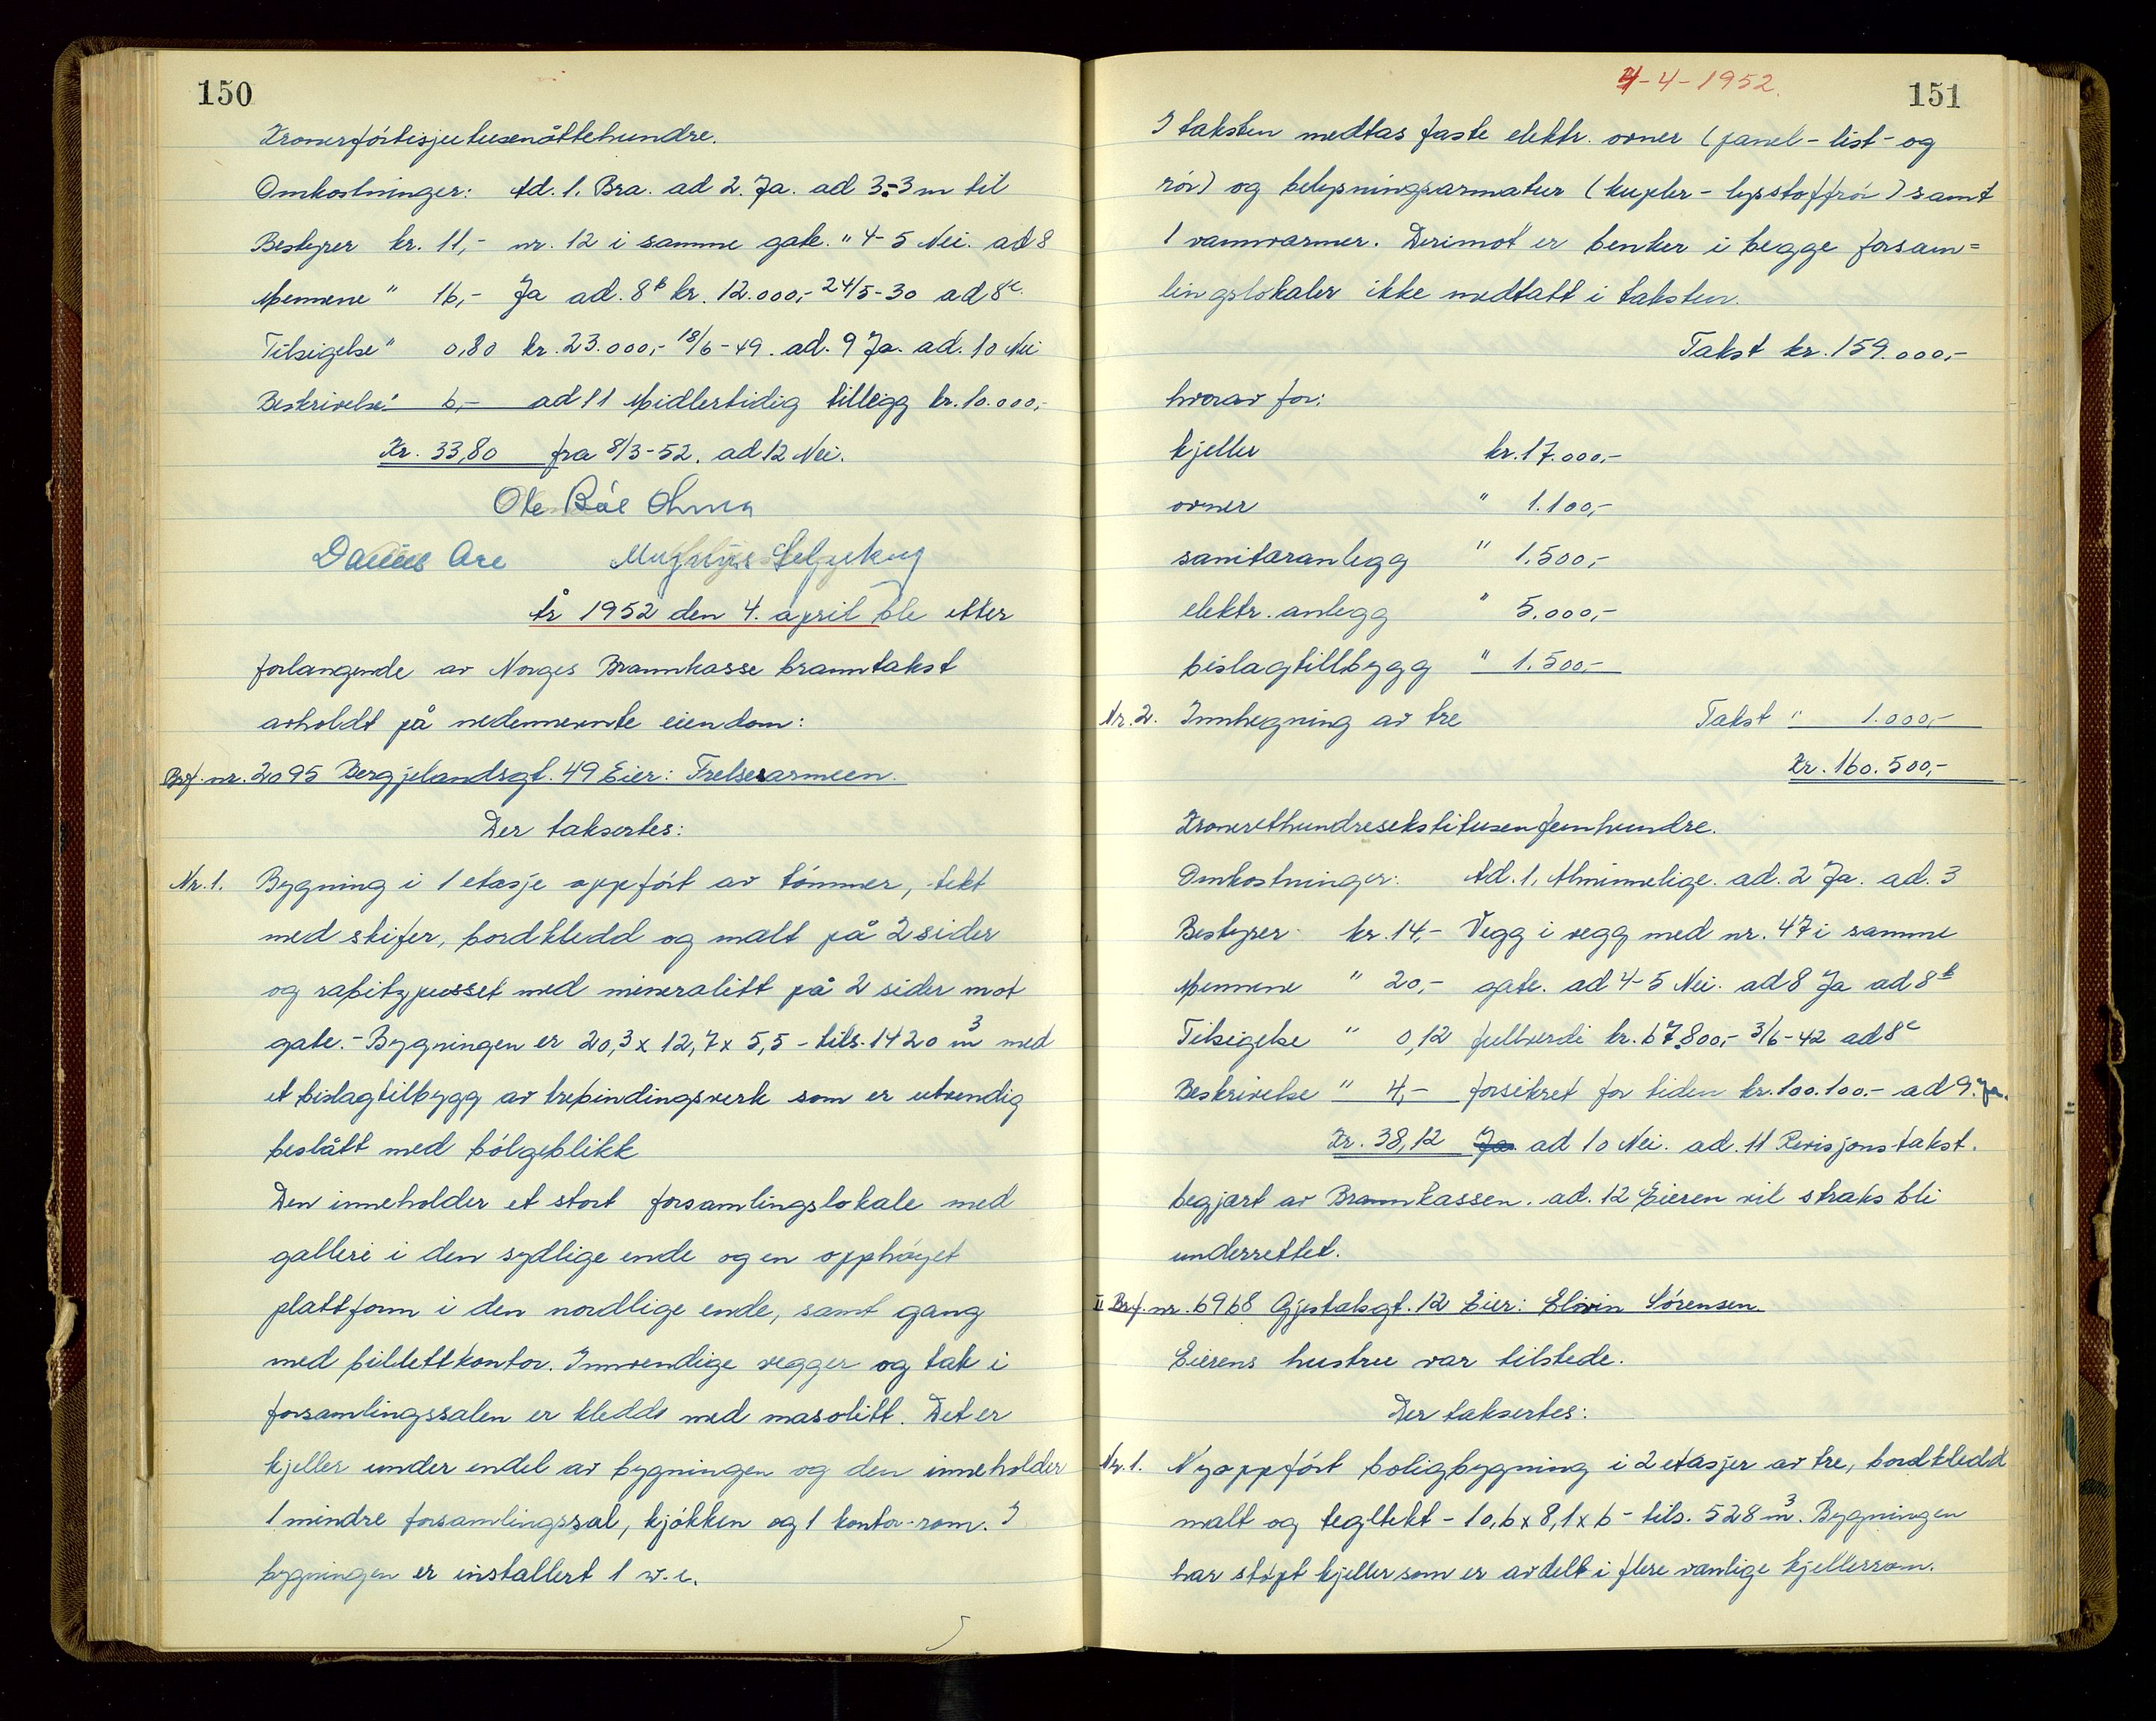 150
Kronerförtisjutusenåttehundre.
Omkostninger: Ad. 1. Bra. ad 2. Ja. ad 3 = 3 m til
Bestyrer kr. 11,- nr. 12 i samme gate. " 4-5 Nei. ad 8
Mennene " 16,- Ja ad. 8b kr. 12.000,- 24/5-30 ad 8c.
Tilsigelse " 0,80 kr. 23.000,- 18/6-49. ad. 9 Ja. ad. 10 Nei
Beskrivelse " 6,- ad 11 Midlertidig tillegg kr. 10.000,-
Kr. 33,80 fra 8/3-52. ad 12 Nei.
Ole
År 1952 den 4. april ble etter
forlangende av Norges Brannkasse branntakst
avholdt på nedennevnte eiendom:
Brf. nr. 2095 Bergjelandsgt. 49 Eier: Frelsesarmeen.
Der taksertes:
Nr. 1. Bygning i 1 etasje oppfört av tömmer, tekt
med skifer, bordkledd og malt på 2 sider
og rabitzpusset med mineralitt på 2 sider mot
gate. - Bygningen er 20,3 x 12,7 x 5,5 - tils. 1420 m³ med
et bislagtilbygg av trebindingsverk som er utvendig
beslått med bölgeblikk
Den inneholder et stort forsamlingslokale med
galleri i den sydlige ende og en opphöyet
plattform i den nordlige ende, samt gang
med billettkontor. Innvendige vegger og tak i
forsamlingssalen er kledd med masolitt. Det er
kjeller under endel av bygningen og den inneholder
1 mindre forsamlingssal, kjökken og 1 kontor-rom. I
bygningen er installert 1 w.c.
4-4-1952.
151
I taksten medtas faste elektr. ovner (panel- list- og
rör) og belysningsarmatur (kupler - lysstoffrör) samt
1 vannvarmer. Derimot er benker i begge forsam=
lingslokaler ikke medtatt i taksten.
Takst kr. 159.000,-
hvorav for:
kjeller kr. 17.000,-
ovner " 1.100,-
sanitæranlegg " 1.500,-
elektr. anlegg " 5.000,-
bislagtillbygg " 1.500,-
Nr. 2. Innhegning av tre Takst " 1.000,-
Kr. 160.500,-
Kronerethundresekstitusenfemhundre.
Omkostninger: Ad. 1. Alminnelige. ad. 2 Ja. ad. 3
Bestyrer kr. 14,- Vegg i vegg med nr. 47 i samme
Mennene " 20,- gate. ad 4-5 Nei. ad 8 Ja ad 8b
Tilsigelse " 0,12 fullverdi kr. 67.800,- 3/6-42 ad 8c
Beskrivelse " 4,- forsikret for tiden kr. 100.100.- ad 9. Ja.
Kr. 38,12 Ja ad 10 Nei. ad. 11 Revisjonstakst.
begjært av Brannkassen. ad. 12 Eieren vil straks bli
underrettet.
II Brf. nr. 6968 Gjestalsgt. 12 Eier: Elovin Sörensen
Eierens hustru var tilstede.
Der taksertes:
Nr. 1. Nyoppfört boligbygning i 2 etasjer av tre, bordkledd
malt og tegltekt - 10,6 x 8,1 x 6 - tils. 528 m³. Bygningen
har stöpt kjeller som er avdelt i flere vanlige kjellerrom.